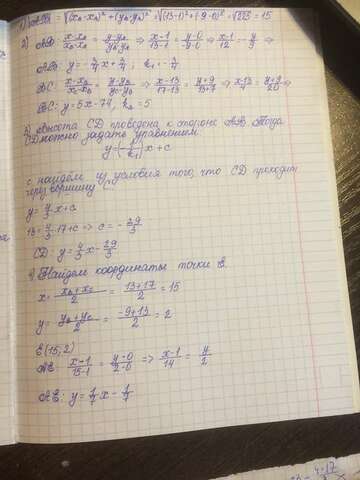 1) AB = √(x_B-x_A)² + (y_B-y_A)² = √(13-1)² + (-9-0)² = √225 = 15
2) AB: x-x_A/x_B-x_A = y-y_A/y_B-y_A ⇒ x-1/13-1 = y-0/-9-0 ⇒ x-1/12 = -y/9 ⇒
AB: y = -3/4 x + 3/4; k₁ = -3/4
BC: x-x_B/x_C-x_B = y-y_B/y_C-y_B ⇒ x-13/17-13 = y+9/13+9 ⇒ x-13/4 = y+9/20 ⇒
BC: y = 5x-74, k₂ = 5
3) Высота CD проведена к стороне AB. Тогда
CD можно задать уравнением.
y = (-1/k₁)x + c
c найдём из условия того, что CD проходит
через вершину C.
y = 4/3 x + c
13 = 4/3 · 17 + c ⇒ c = -29/3
CD: y = 4/3 x - 29/3
4. Найдем координаты точки E.
x = x_B + x_C/2 = 13+17/2 = 15
y = y_B + y_C/2 = -9+13/2 = 2
E(15; 2)
AE: x-1/15-1 = y-0/2-0 ⇒ x-1/14 = y/2
AE: y = 1/7 x - 1/7